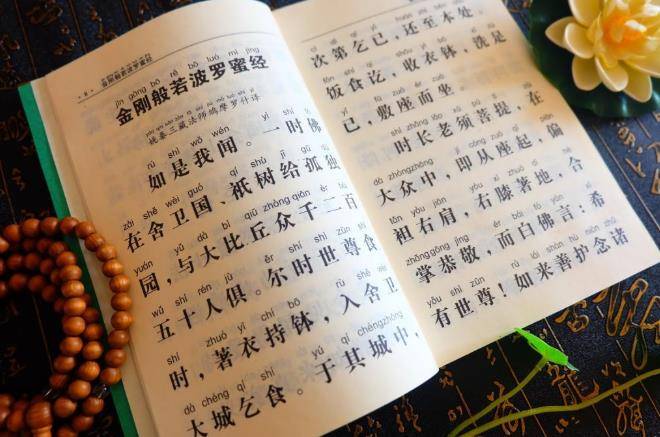 金刚般若波罗蜜经
jīn gāng bō rě bō luó mì jīng
金刚般若波罗蜜经
姚秦三藏法师鸠摩罗什译
rú shì wǒ wén yī shí fó
如是我闻。一时佛
zài shè wèi guó qí shù jǐ gū dú
在舍卫国、祇树给孤独
yuán yǔ dà bǐ qiū zhòng qiān èr bǎi
园，与大比丘众千二百
wǔ shí rén jù ěr shí shì zūn shí
五十人俱。尔时世尊食
shí zhuó yī chí bō rù shè wèi
时，著衣持钵，入舍卫
dà chéng qǐ shí yú qí chéng zhōng
大城乞食。于其城中，
次第乞已，还至本处。
饭食讫，收衣钵，洗足
yǐ fū zuò ér zuò
已，敷座而坐。
shí zhǎng lǎo xū pú tí zài
时长老须菩提，在
dà zhòng zhōng jí cóng zuò qǐ piān
大众中，即从座起，偏
tǎn yòu jiān yòu xī zhuó dì hé
袒右肩，右膝著地，合
zhǎng gōng jìng ér bái fó yán xī
掌恭敬，而白佛言：希
yǒu shì zūn rú lái shàn hù niàn zhū
有世尊！如来善护念诸